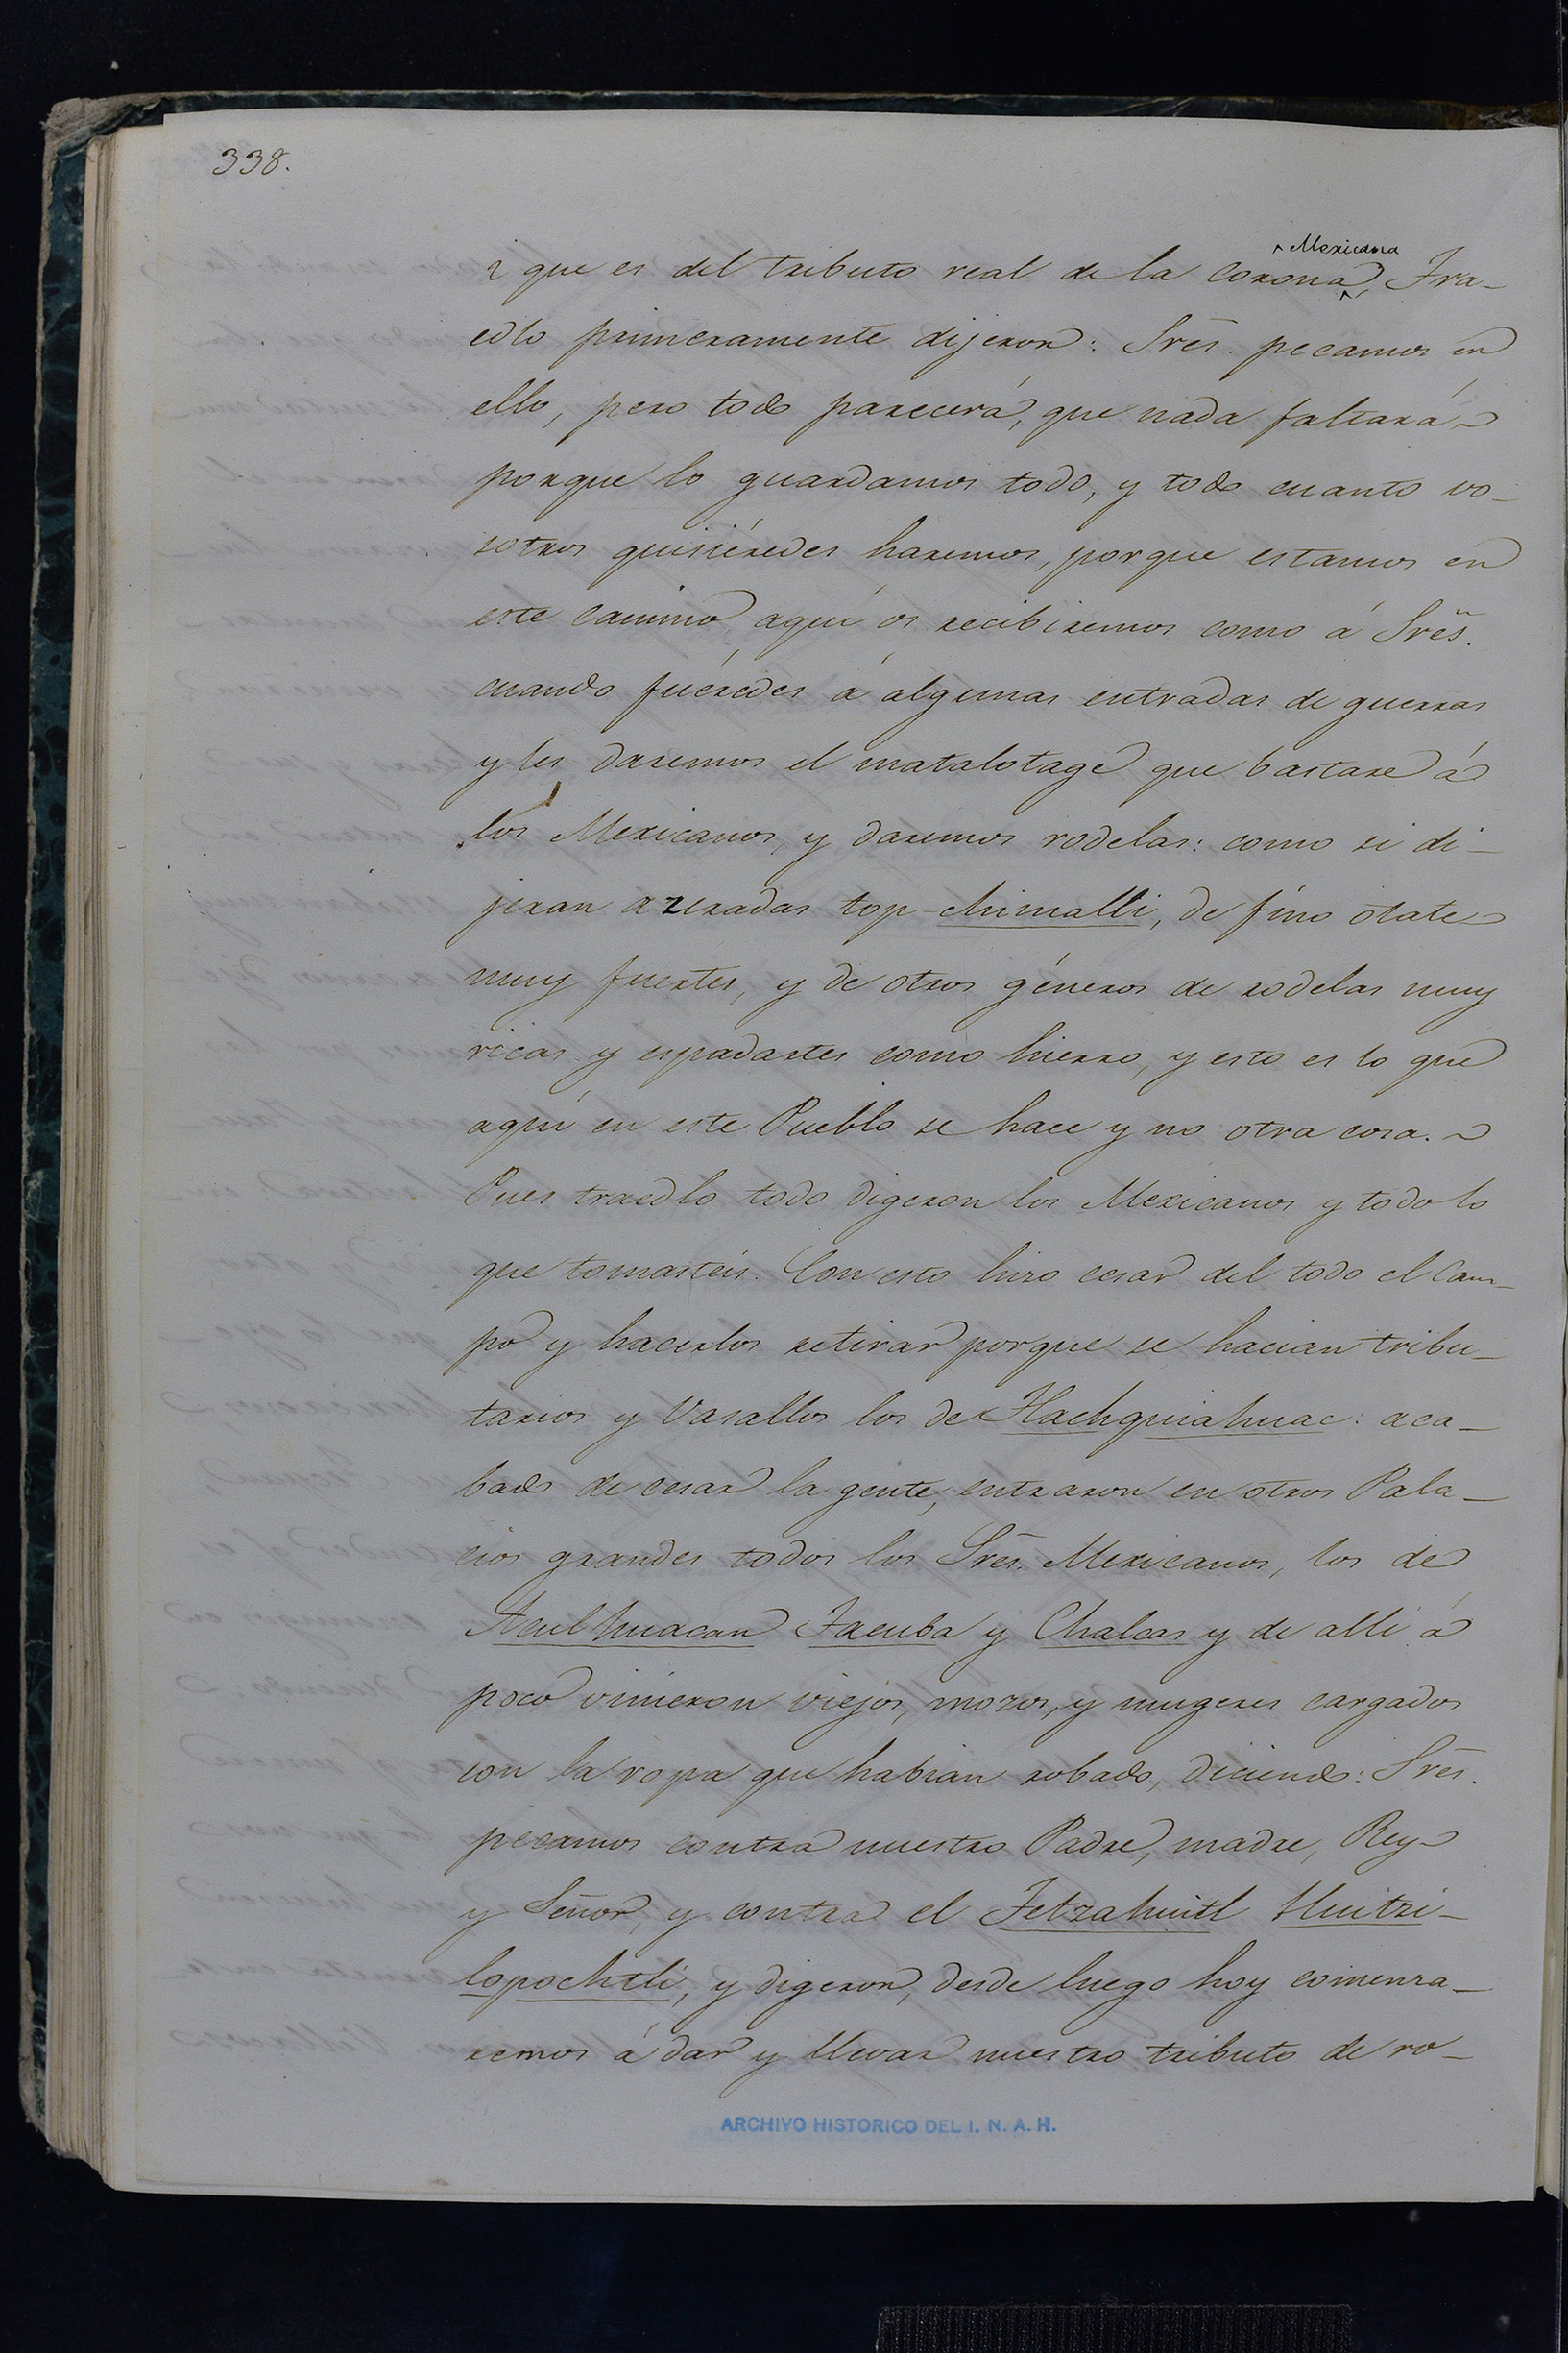 338.
^ Mexicana
i que es del tributo real de la corona, Tra-
edlo primeramente dijeron: Srēs. pecamos en
ello, pero todo parecerá, que nada faltará
porque lo guardamos todo, y todo cuanto vo-
sotros quisiéredes haremos, porque estamos en
este camino aquí os recibiremos como á Srēs.
cuando fuéredes á algunas entradas de guerras
y les daremos el matalotage que bastare á
los Mexicanos, y daremos rodelas: como si di-
jeran azeradas top-chimalli, de fino otate
muy fuertes, y de otros géneros de rodelas muy
ricas y espadartes como hierro, y esto es lo que
aquí en este Pueblo se hace y no otra cosa.
Pues traedlo todo digeron los Mexicanos y todo lo
que tomasteis. Con esto hizo cesar del todo el Cam-
po y hacerlos retirar porque se hacian tribu-
tarios y Vasallos los de Tlachquiahuac: aca-
bado de cesar la gente, entraron en otros Pala-
cios grandes todos los Srēs. Mexicanos, los de
Aculhuacan Tacuba y Chalcas y de alli á
poco vinieron viejos, mozos, y mugeres cargados
con la ropa que habian robado, diciendo: Srēs.
pecamos contra nuestro Padre, madre, Rey
y Señor, y contra el Tetzahuitl Huitzi-
lopochtli, y digeron, desde luego hoy comenza-
remos á dar y llevar nuestro tributo de ro-
ARCHIVO HISTORICO DEL I. N. A. H.